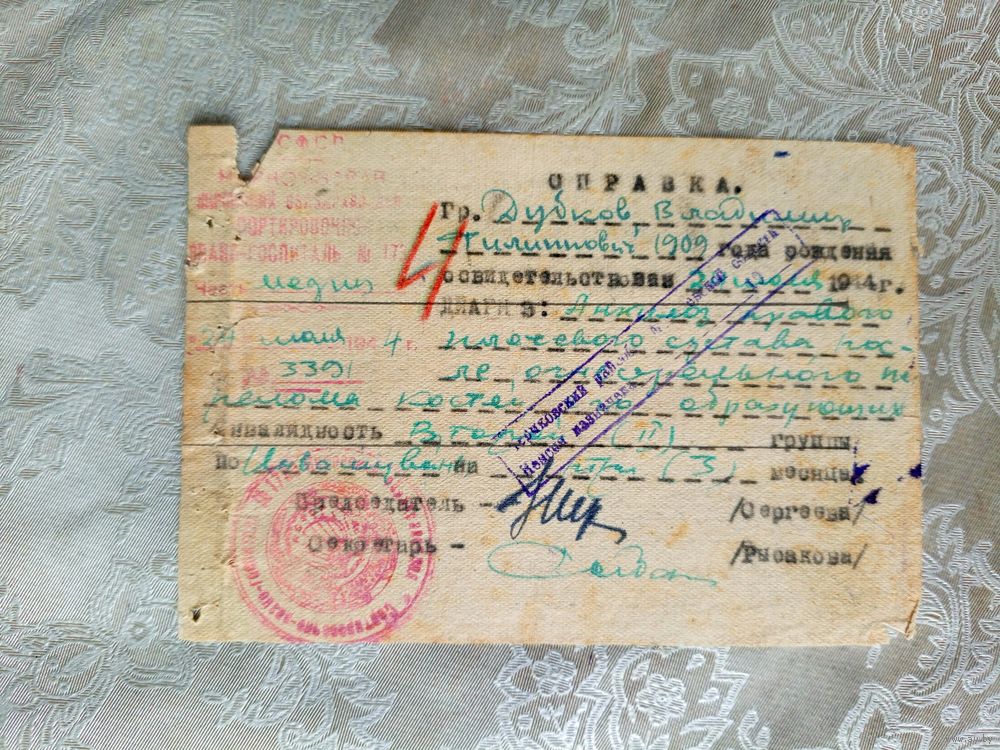 СФСР
СОРТИРОВОЧН
ЭВАКО-ГОСПИТАЛЬ №
Часть медиц
24 июля 1944 г.
№ 3391
СПРАВКА.
Гр. Дубков Владимир
Филиппович, 1909 года рождения
освидетельствован июля 1944г.
ДИАГНОЗ: Анкилоз правого
плечевого сустава пос-
ле огнестрельного пе
релома костей его образующих
Инвалидность Вторая (II) группы,
по на три (3) месяца
Председатель - /Сергеева/
Секретарь - /Рысакова/
4
Пенсия назначена